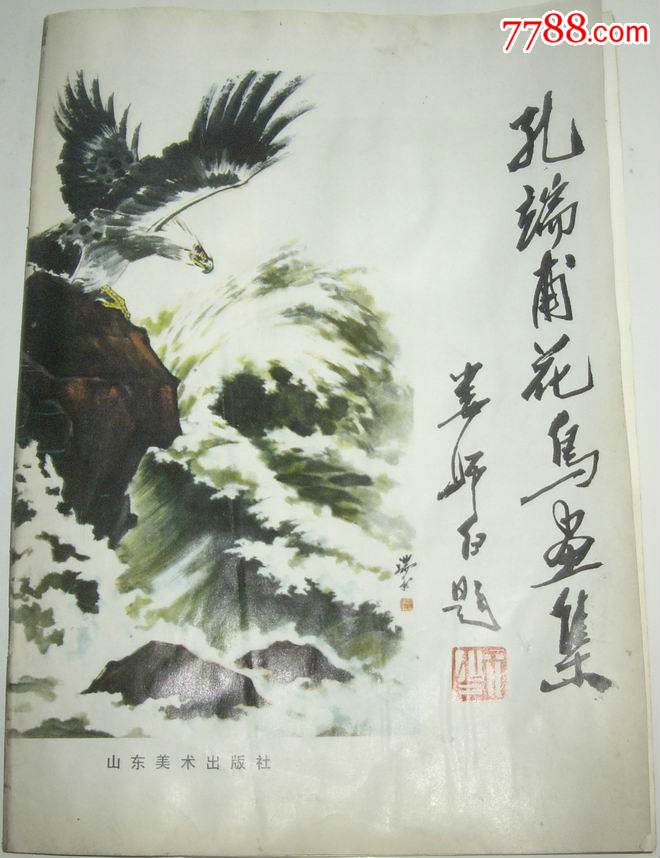 7788.com
孔端甫花鸟画集
娄师白题
山东美术出版社